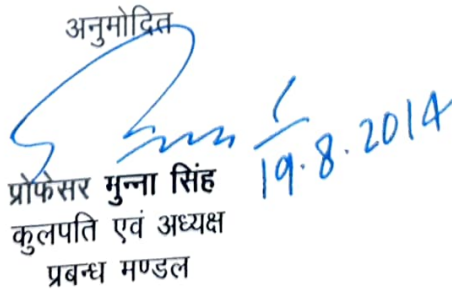 अनुमोदित
19.8.2014
प्रोफेसर मुन्ना सिंह
कुलपति एवं अध्यक्ष
प्रबन्ध मण्डल